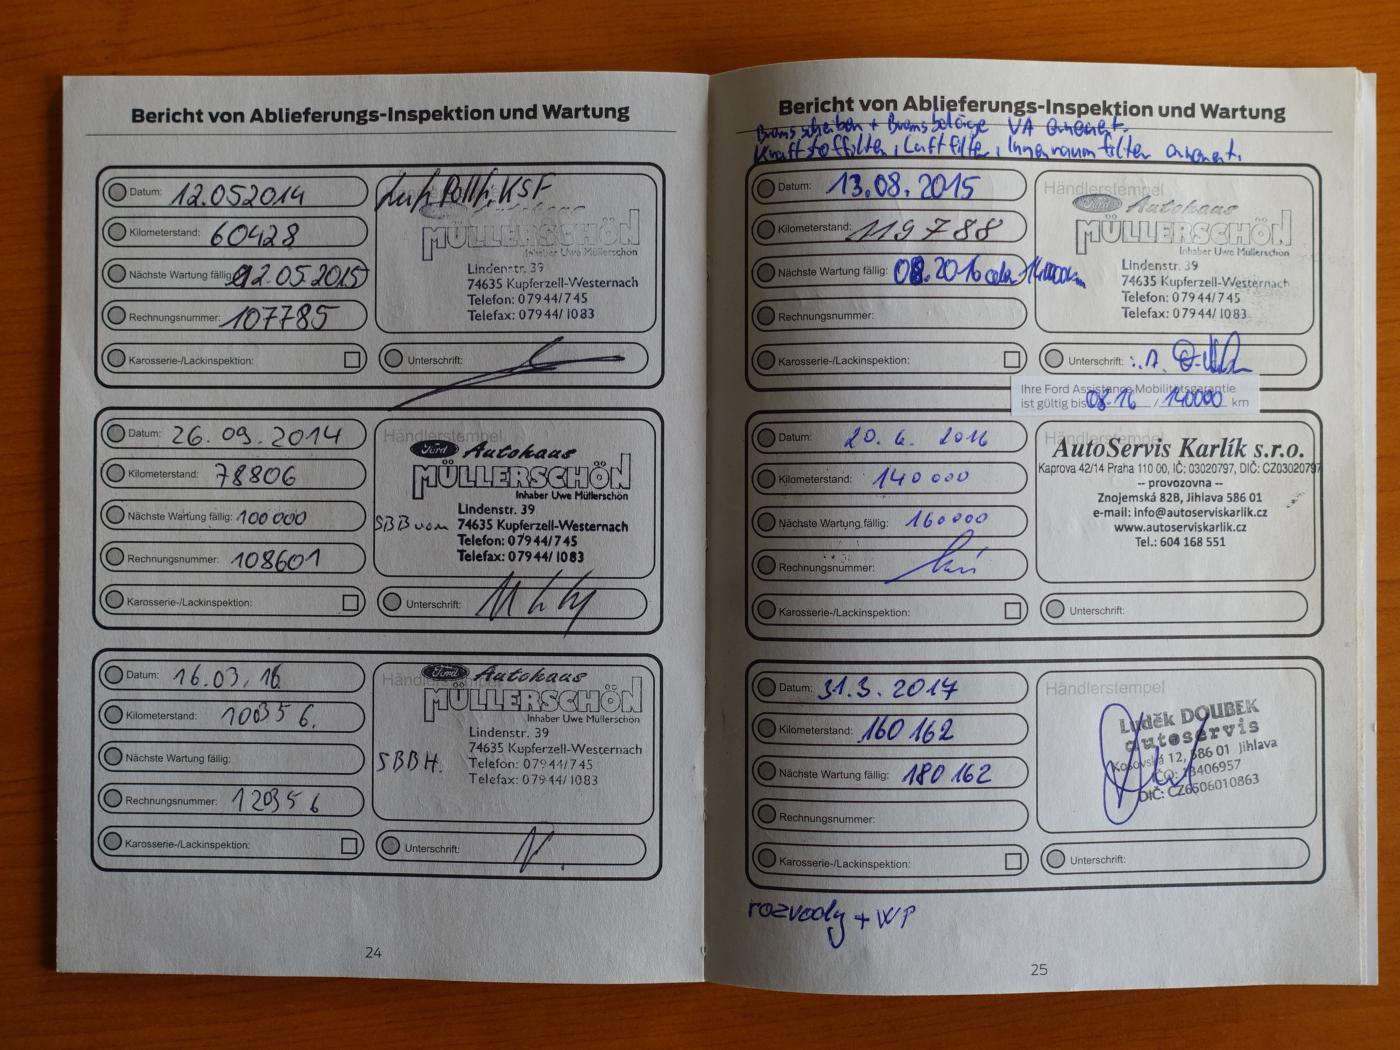 Bericht von Ablieferungs-Inspektion und Wartung
Datum: 12.052014
Kilometerstand: 60428
Nächste Wartung fällig: 12.05.2015
Rechnungsnummer: 107785
Karosserie-/Lackinspektion:
Händlerstempel
Autohaus
MÜLLERSCHÖN
Inhaber Uwe Müllerschön
Lindenstr. 39
74635 Kupferzell-Westernach
Telefon: 07944/745
Telefax: 07944/1083
Unterschrift:
Datum: 26.09.2014
Kilometerstand: 78806
Nächste Wartung fällig: 100 000
Rechnungsnummer: 108601
Karosserie-/Lackinspektion:
Händlerstempel
Ford Autohaus
MÜLLERSCHÖN
Inhaber Uwe Müllerschön
Lindenstr. 39
74635 Kupferzell-Westernach
Telefon: 07944/745
Telefax: 07944/1083
Unterschrift:
Datum: 16.03.16
Kilometerstand: 100356.
Nächste Wartung fällig:
Rechnungsnummer: 120356
Karosserie-/Lackinspektion:
Händlerstempel
Ford Autohaus
MÜLLERSCHÖN
Inhaber Uwe Müllerschön
Lindenstr. 39
SBBH. 74635 Kupferzell-Westernach
Telefon: 07944/745
Telefax: 07944/1083
Unterschrift:
24
Bericht von Ablieferungs-Inspektion und Wartung
Bremsscheiben + Bremsbeläge VA erneuert.
Kraftstoffilter, Luftfilter, Innenraumfilter erneuert.
Datum: 13.08.2015
Kilometerstand: 119788
Nächste Wartung fällig: 08.2016 oder 140000km
Rechnungsnummer:
Karosserie-/Lackinspektion:
Händlerstempel
Ford Autohaus
MÜLLERSCHÖN
Inhaber Uwe Müllerschön
Lindenstr. 39
74635 Kupferzell-Westernach
Telefon: 07944/745
Telefax: 07944/1083
Unterschrift:
Ihre Ford Assistance Mobilitätsgarantie
ist gültig bis 08.16 / 140000 km
Datum: 20. 6. 2016
Kilometerstand: 140 000
Nächste Wartung fällig: 160000
Rechnungsnummer:
Karosserie-/Lackinspektion:
AutoServis Karlík s.r.o.
Kaprova 42/14 Praha 110 00, IČ: 03020797, DIČ: CZ03020797
-- provozovna --
Znojemská 82B, Jihlava 586 01
e-mail: info@autoserviskarlik.cz
www.autoserviskarlik.cz
Tel.: 604 168 551
Unterschrift:
Datum: 31.3.2017
Kilometerstand: 160 162
Nächste Wartung fällig: 180 162
Rechnungsnummer:
Karosserie-/Lackinspektion:
Händlerstempel
Luděk DOUBEK
autoservis
Kosovská 12, 586 01 Jihlava
DIČ: CZ6506010863
Unterschrift:
rozvody + WP
25